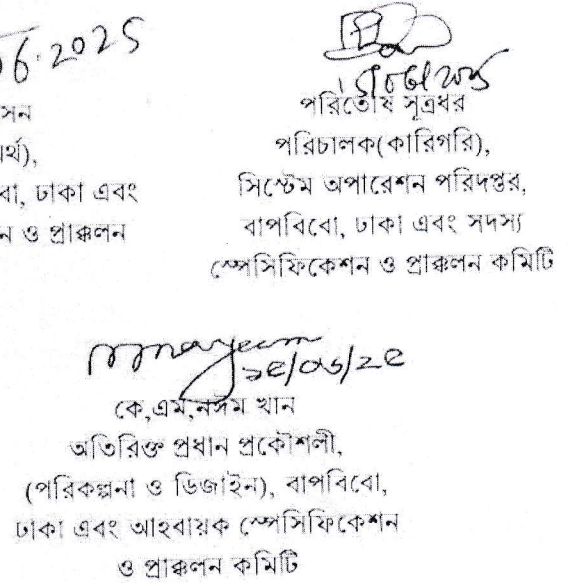 06.2025
সন
র্থ),
বো, ঢাকা এবং
ন ও প্রাক্কলন
১৫/06/2025
পরিতোষ সূত্রধর
পরিচালক(কারিগরি),
সিস্টেম অপারেশন পরিদপ্তর,
বাপবিবো, ঢাকা এবং সদস্য
স্পেসিফিকেশন ও প্রাক্কলন কমিটি
১৫/০৬/২৫
কে,এম,নঈম খান
অতিরিক্ত প্রধান প্রকৌশলী,
(পরিকল্পনা ও ডিজাইন), বাপবিবো,
ঢাকা এবং আহবায়ক স্পেসিফিকেশন
ও প্রাক্কলন কমিটি